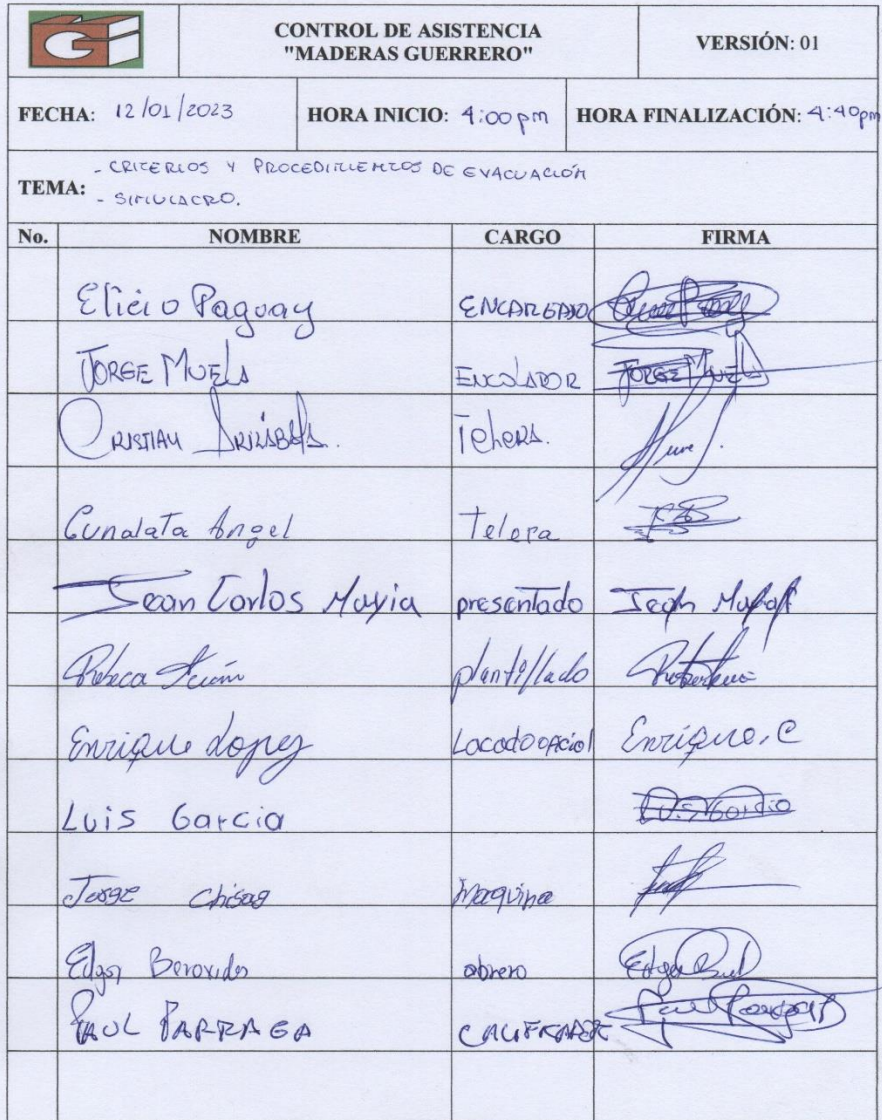 CONTROL DE ASISTENCIA
"MADERAS GUERRERO"
VERSIÓN: 01
FECHA: 12/01/2023 HORA INICIO: 4:00 pm HORA FINALIZACIÓN: 4:40pm
TEMA: - CRITERIOS Y PROCEDIMIENTOS DE EVACUACIÓN
- SIMULACRO.
No. NOMBRE CARGO FIRMA
Elicio Paguay ENCARGADO
JORGE MUELA ENCOLADOR JORGE MUELA
CRISTIAN
Cunalata Angel Telera
Jean Carlos presentado Jean
Rebeca plantillado
Enrique Lopez Enrique. C
Luis Garcia Luis Garcia
Jorge Chisag Maquina
Edgar obrero Edgar
PAUL PARRAGA